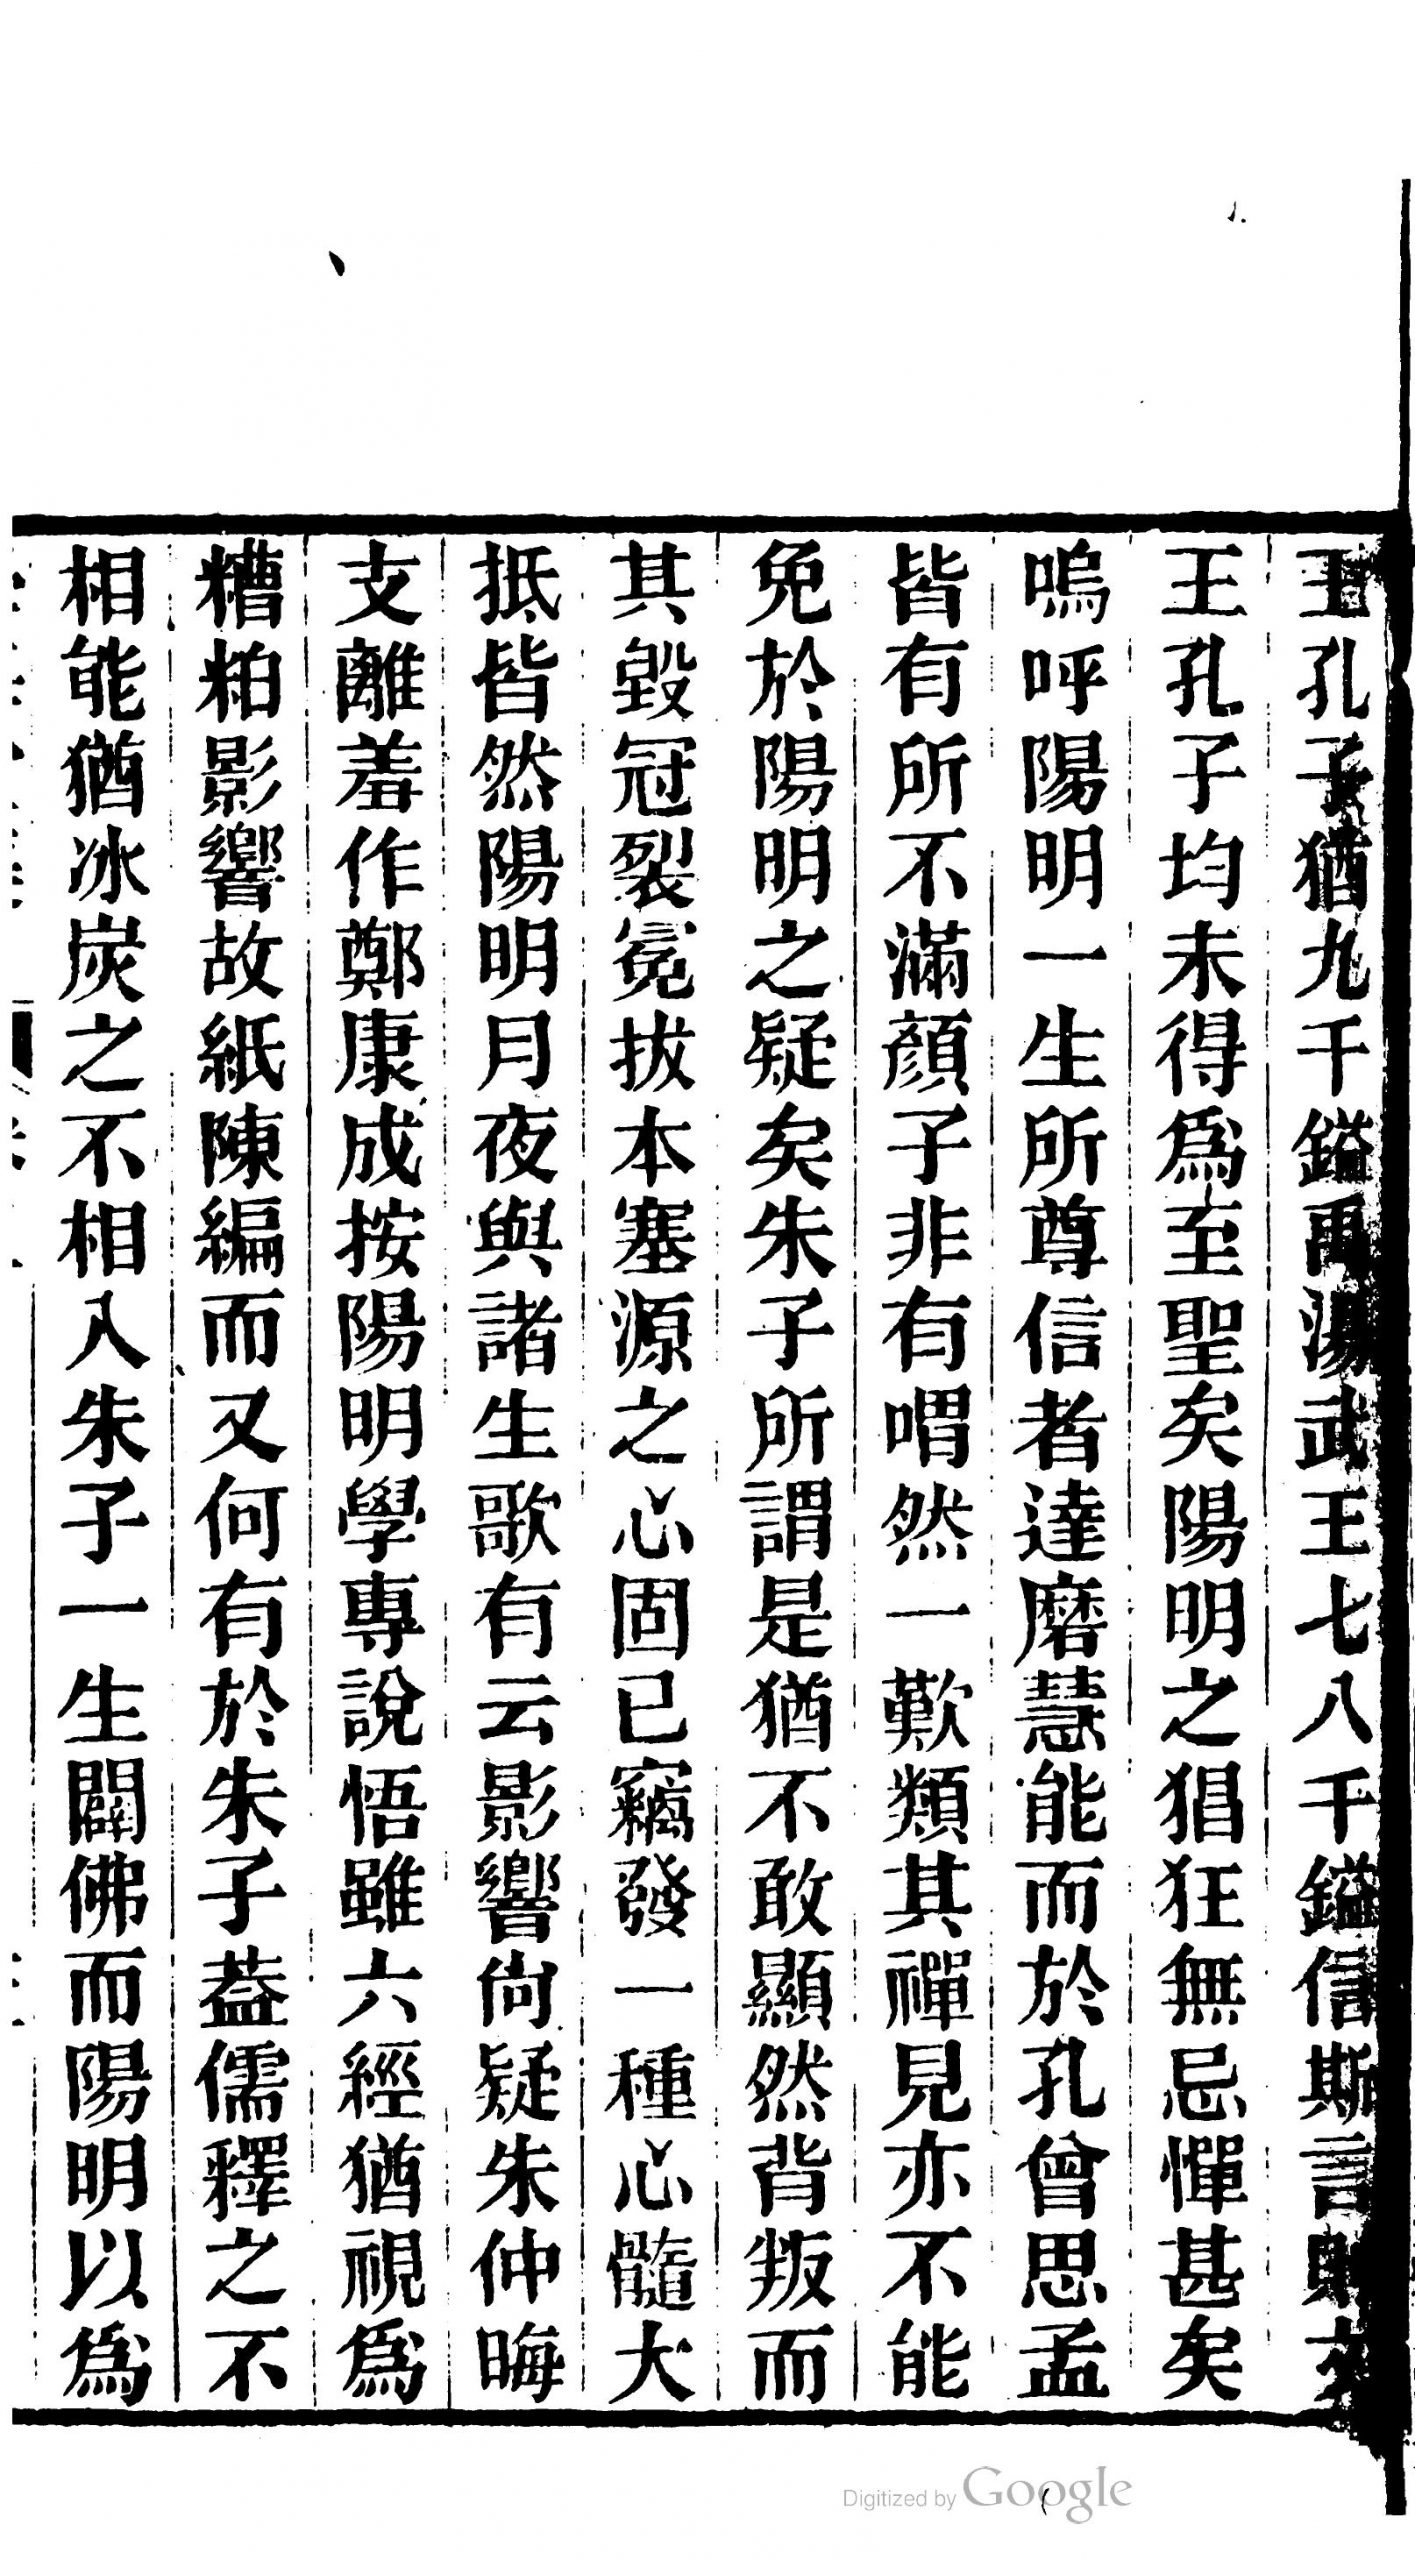 王孔子猶九千鎰禹湯武王七八千鎰信斯言則文
王孔子均未得爲至聖矣陽明之猖狂無忌憚甚矣
嗚呼陽明一生所尊信者達磨慧能而於孔曾思孟
皆有所不滿顏子非有喟然一歎類其禪見亦不能
免於陽明之疑矣朱子所謂是猶不敢顯然背叛而
其毀冠裂冕拔本塞源之心固已竊發一種心髓大
抵皆然陽明月夜與諸生歌有云影響尚疑朱仲晦
支離羞作鄭康成按陽明學專說悟雖六經猶視爲
糟粕影響故紙陳編而又何有於朱子葢儒釋之不
相能猶冰炭之不相入朱子一生闢佛而陽明以爲
Digitized by Google